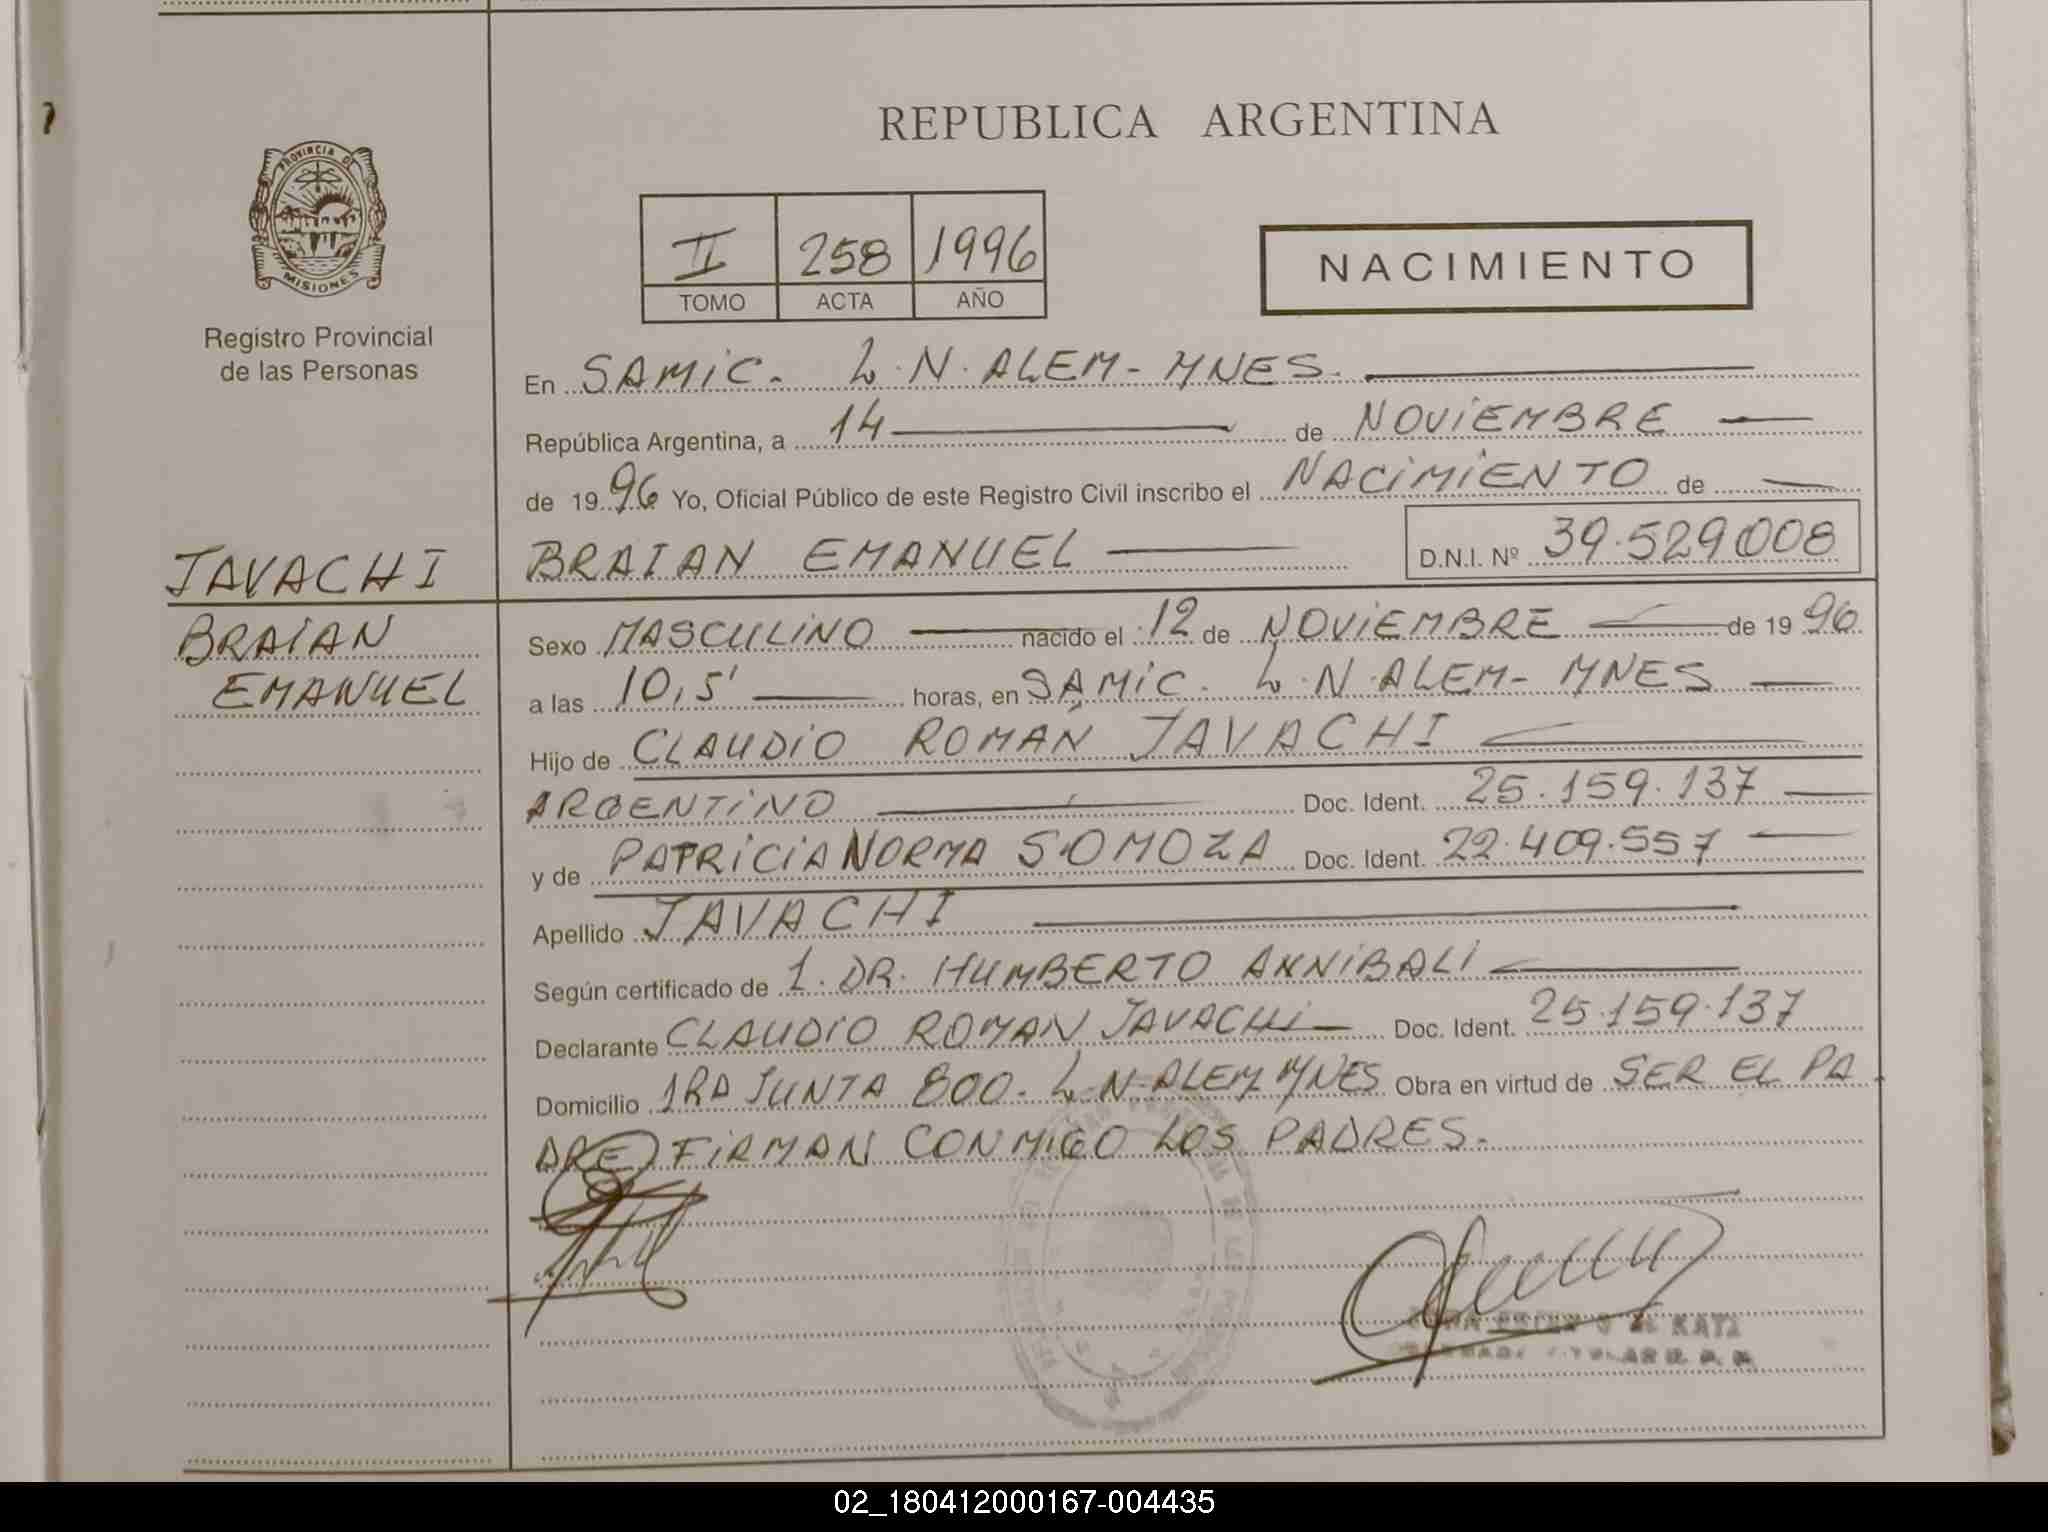 REPUBLICA ARGENTINA
PROVINCIA DE
MISIONES
II 258 1996
TOMO ACTA AÑO
NACIMIENTO
Registro Provincial
de las Personas
En SAMIC. L.N.ALEM-MNES.
República Argentina, a 14 de NOVIEMBRE
de 1996 Yo, Oficial Público de este Registro Civil inscribo el NACIMIENTO de
JAVACHI
BRAIAN
EMANUEL
BRAIAN EMANUEL D.N.I. Nº 39.529.008
Sexo MASCULINO nacido el 12 de NOVIEMBRE de 1996
a las 10,5' horas, en SAMIC. L.N.ALEM-MNES
Hijo de CLAUDIO ROMÁN JAVACHI
ARGENTINO Doc. Ident. 25.159.137
y de PATRICIA NORMA SOMOZA Doc. Ident. 22.409.557
Apellido JAVACHI
Según certificado de 1. DR. HUMBERTO ANNIBALI
Declarante CLAUDIO ROMAN JAVACHI Doc. Ident. 25.159.137
Domicilio 1RA JUNTA 800. L.N.ALEM MNES Obra en virtud de SER EL PA
DRE FIRMAN CONMIGO LOS PADRES.
02_180412000167-004435